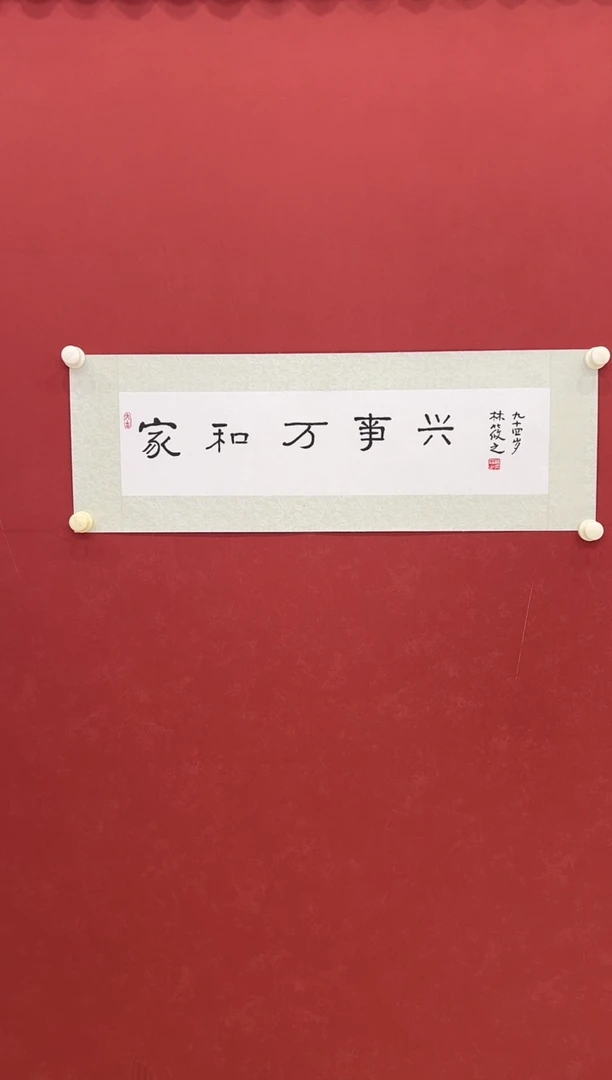 家和万事兴
九十四岁
林筱之